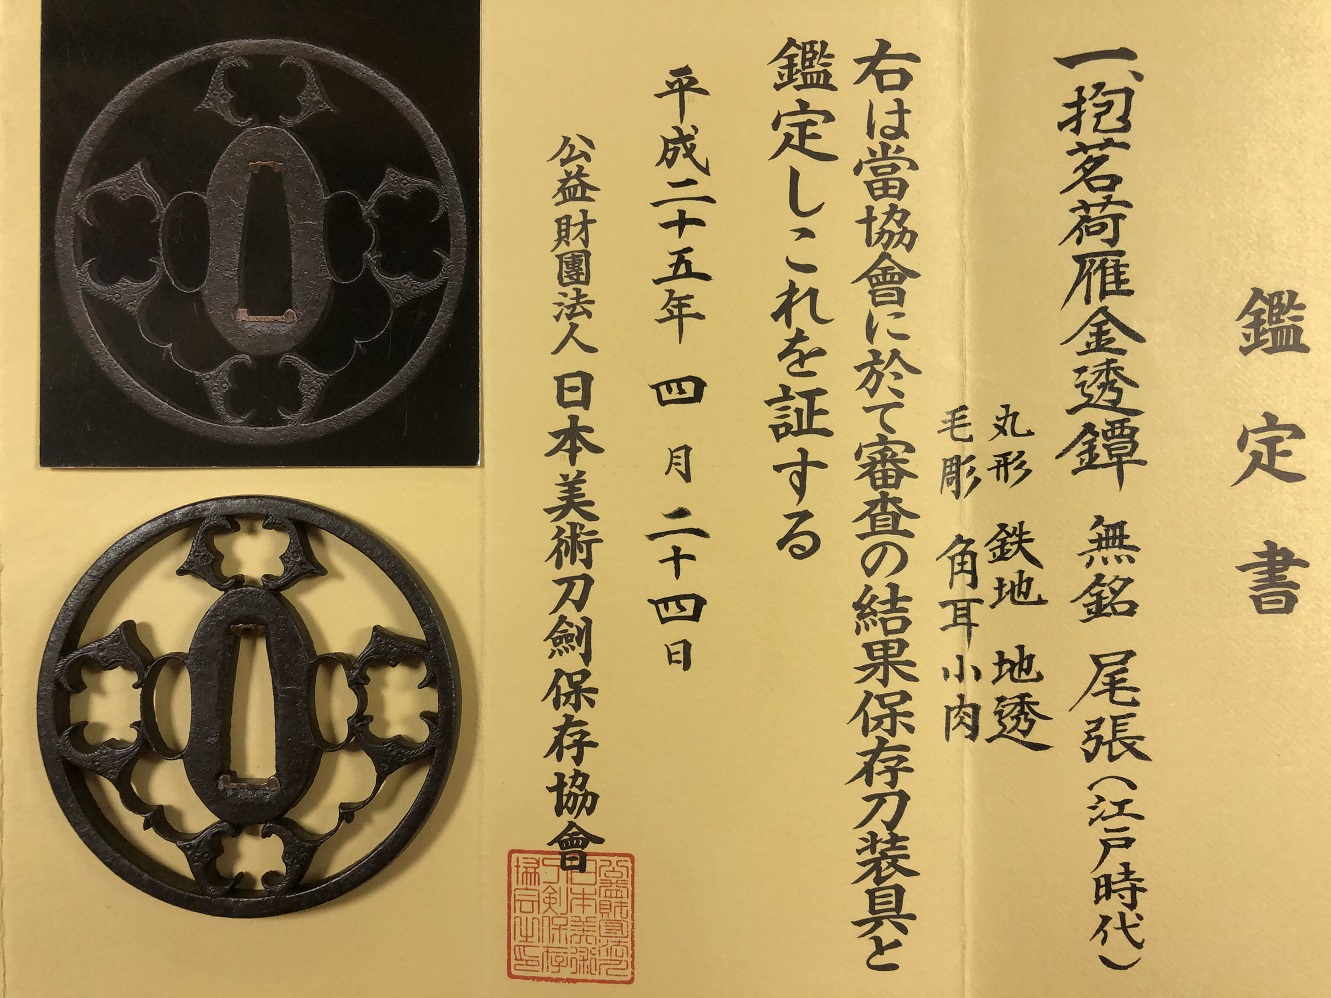 鑑定書
一、抱茗荷雁金透鐔 無銘 尾張(江戸時代)
丸形 鉄地 地透
毛彫 角耳小肉
右は當協會に於て審査の結果保存刀装具と
鑑定しこれを証する
平成二十五年 四月二十四日
公益財團法人 日本美術刀劍保存協會
公益財団法人
日本美術
刀剣保存
協会之印